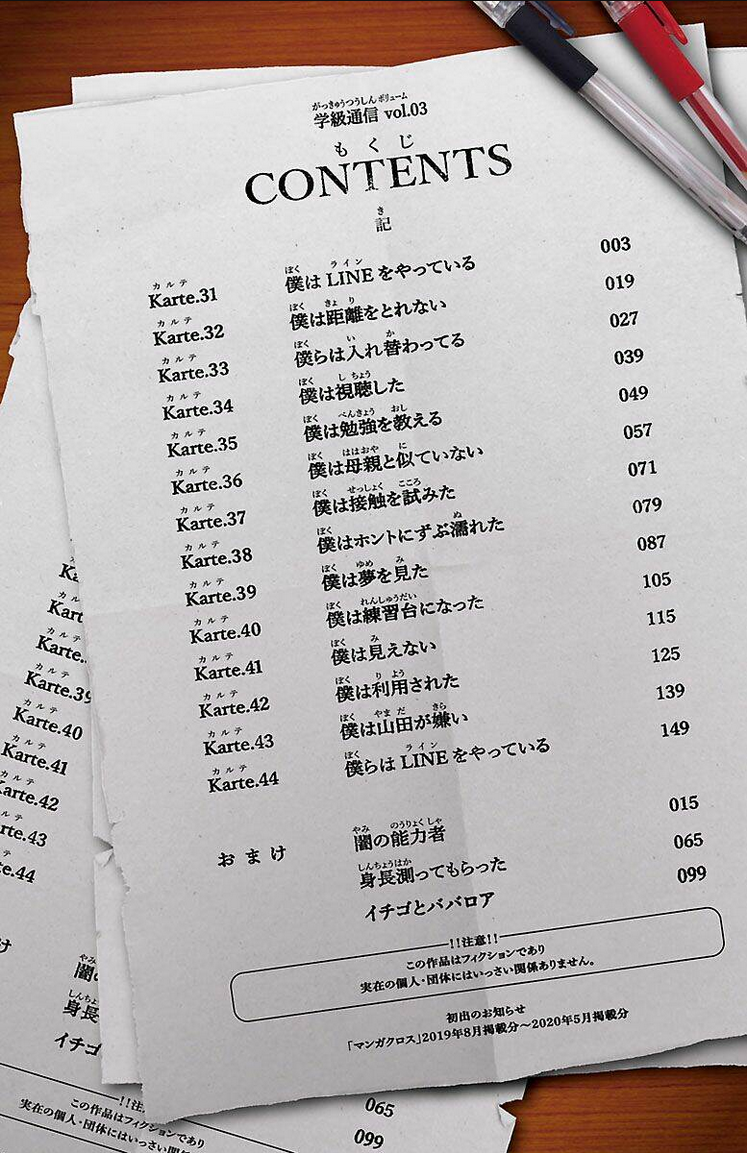 がっきゅうつうしん ボリューム
学級通信 vol.03
もくじ
CONTENTS
き
記
カルテ ぼく ライン
Karte.31 僕は LINE をやっている 003
カルテ ぼく きょり
Karte.32 僕は距離をとれない 019
カルテ ぼく い か
Karte.33 僕らは入れ替わってる 027
カルテ ぼく しちょう
Karte.34 僕は視聴した 039
カルテ ぼく べんきょう おし
Karte.35 僕は勉強を教える 049
カルテ ぼく ははおや に
Karte.36 僕は母親と似ていない 057
カルテ ぼく せっしょく こころ
Karte.37 僕は接触を試みた 071
カルテ ぼく ぬ
Karte.38 僕はホントにずぶ濡れた 079
カルテ ぼく ゆめ み
Karte.39 僕は夢を見た 087
カルテ ぼく れんしゅうだい
Karte.40 僕は練習台になった 105
カルテ ぼく み
Karte.41 僕は見えない 115
カルテ ぼく りよう
Karte.42 僕は利用された 125
カルテ ぼく やまだ きら
Karte.43 僕は山田が嫌い 139
カルテ ぼく ライン
Karte.44 僕らは LINE をやっている 149
やみ のうりょくしゃ
おまけ 闇の能力者 015
しんちょうはか
身長測ってもらった 065
イチゴとババロア 099
!!注意!!
この作品はフィクションであり
実在の個人・団体にはいっさい関係ありません。
初出のお知らせ
「マンガクロス」2019年8月掲載分～2020年5月掲載分
Ka
Kart
カルテ
Karte.
カルテ
Karte.39
カルテ
Karte.40
カルテ
Karte.41
カルテ
Karte.42
カルテ
rte.43
カルテ
e.44
け
やみ
闇の
しんちょ
身長
イチゴ
065
099
!!注
この作品はフィクションであり
実在の個人・団体にはいっさい関係